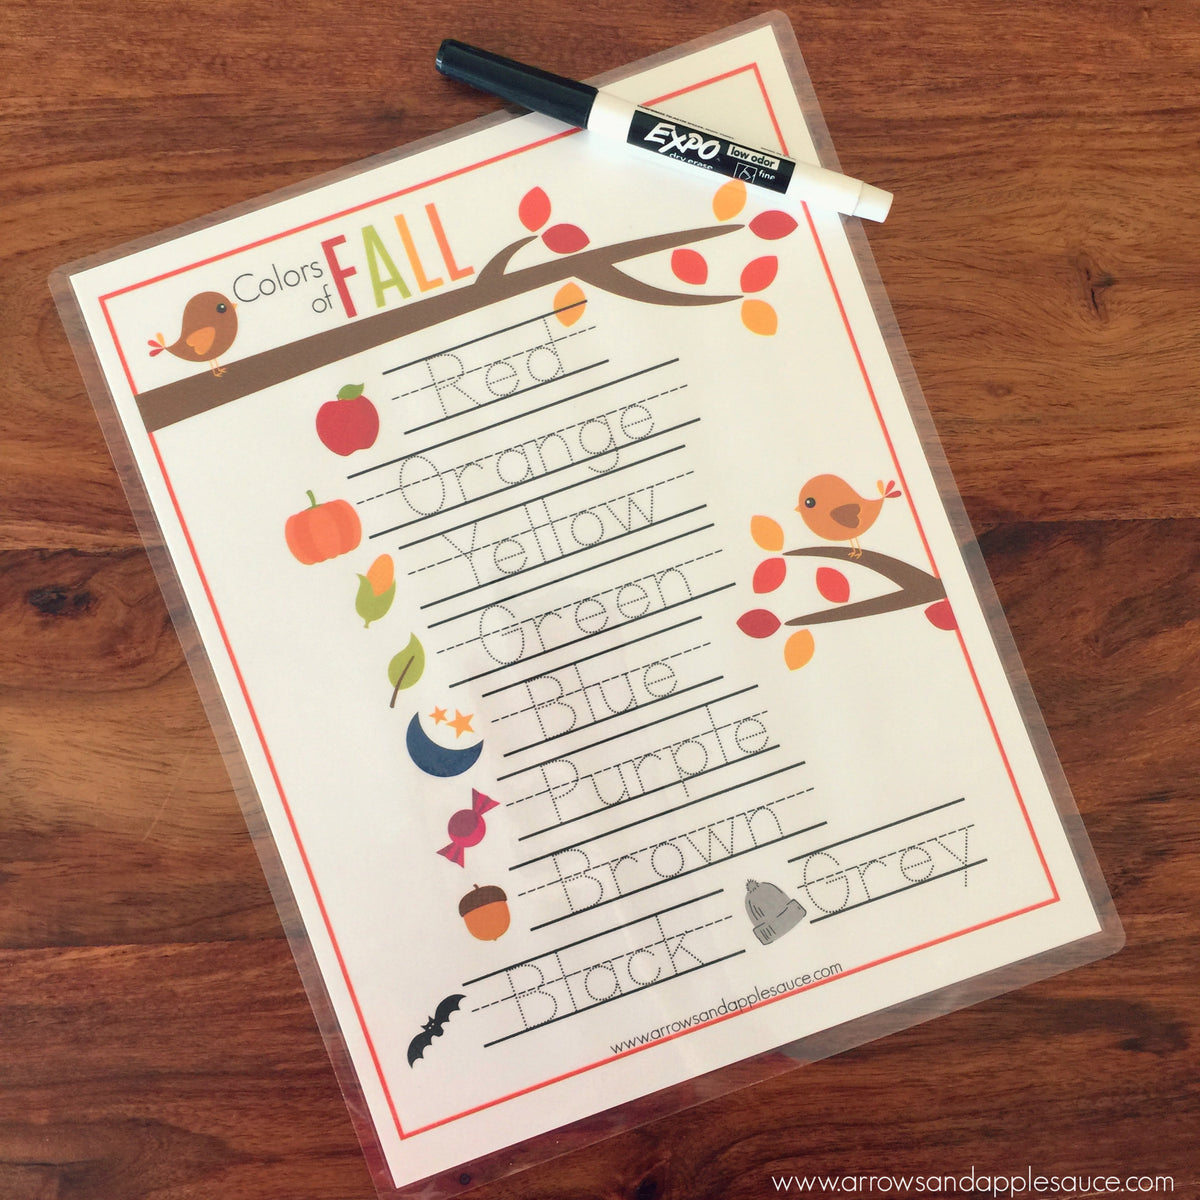 EXPO
low odor
dry erase
fine
Colors
of
FALL
Red
Orange
Yellow
Green
Blue
Purple
Brown
Grey
Black
www.arrowsandapplesauce.com
www.arrowsandapplesauce.com